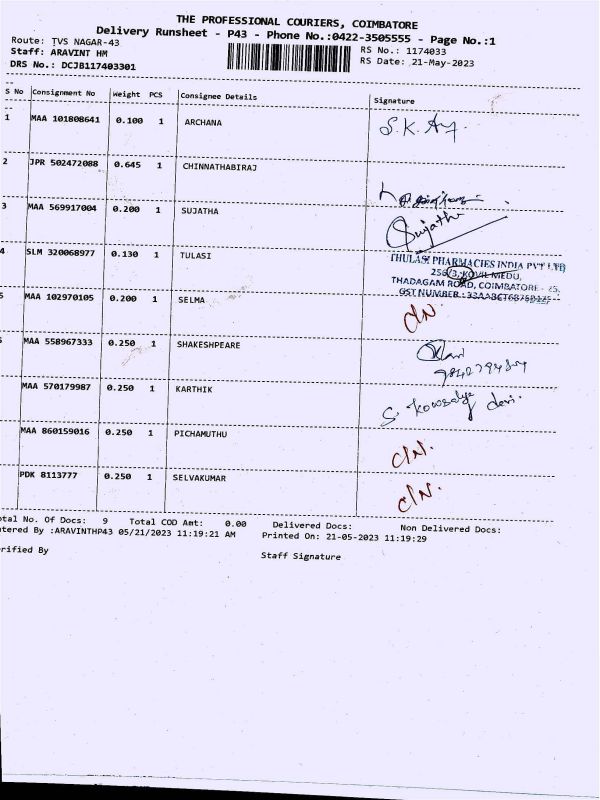 THE PROFESSIONAL COURIERS, COIMBATORE
Delivery Runsheet - P43 - Phone No.:0422-3505555 - Page No.:1
Route: TVS NAGAR-43 RS No.: 1174033
Staff: ARAVINT HM RS Date: 21-May-2023
DRS No.: DCJB117403301
S No Consignment No Weight PCS Consignee Details Signature
1 MAA 101808641 0.100 1 ARCHANA S.K.
2 JPR 502472088 0.645 1 CHINNATHABIRAJ
3 MAA 569917004 0.200 1 SUJATHA Sujatha
4 SLM 320068977 0.130 1 TULASI
THULASI PHARMACIES INDIA PVT LTD
256/3, KOVIL MEDU,
THADAGAM ROAD, COIMBATORE - 25.
GST NUMBER :
5 MAA 102970105 0.200 1 SELMA C/N.
MAA 558967333 0.250 1 SHAKESHPEARE
MAA 570179987 0.250 1 KARTHIK S. Kowsalya devi.
MAA 860159016 0.250 1 PICHAMUTHU C/N.
PDK 8113777 0.250 1 SELVAKUMAR C/N.
otal No. Of Docs: 9 Total COD Amt: 0.00 Delivered Docs: Non Delivered Docs:
ntered By :ARAVINTHP43 05/21/2023 11:19:21 AM Printed On: 21-05-2023 11:19:29
erified By Staff Signature